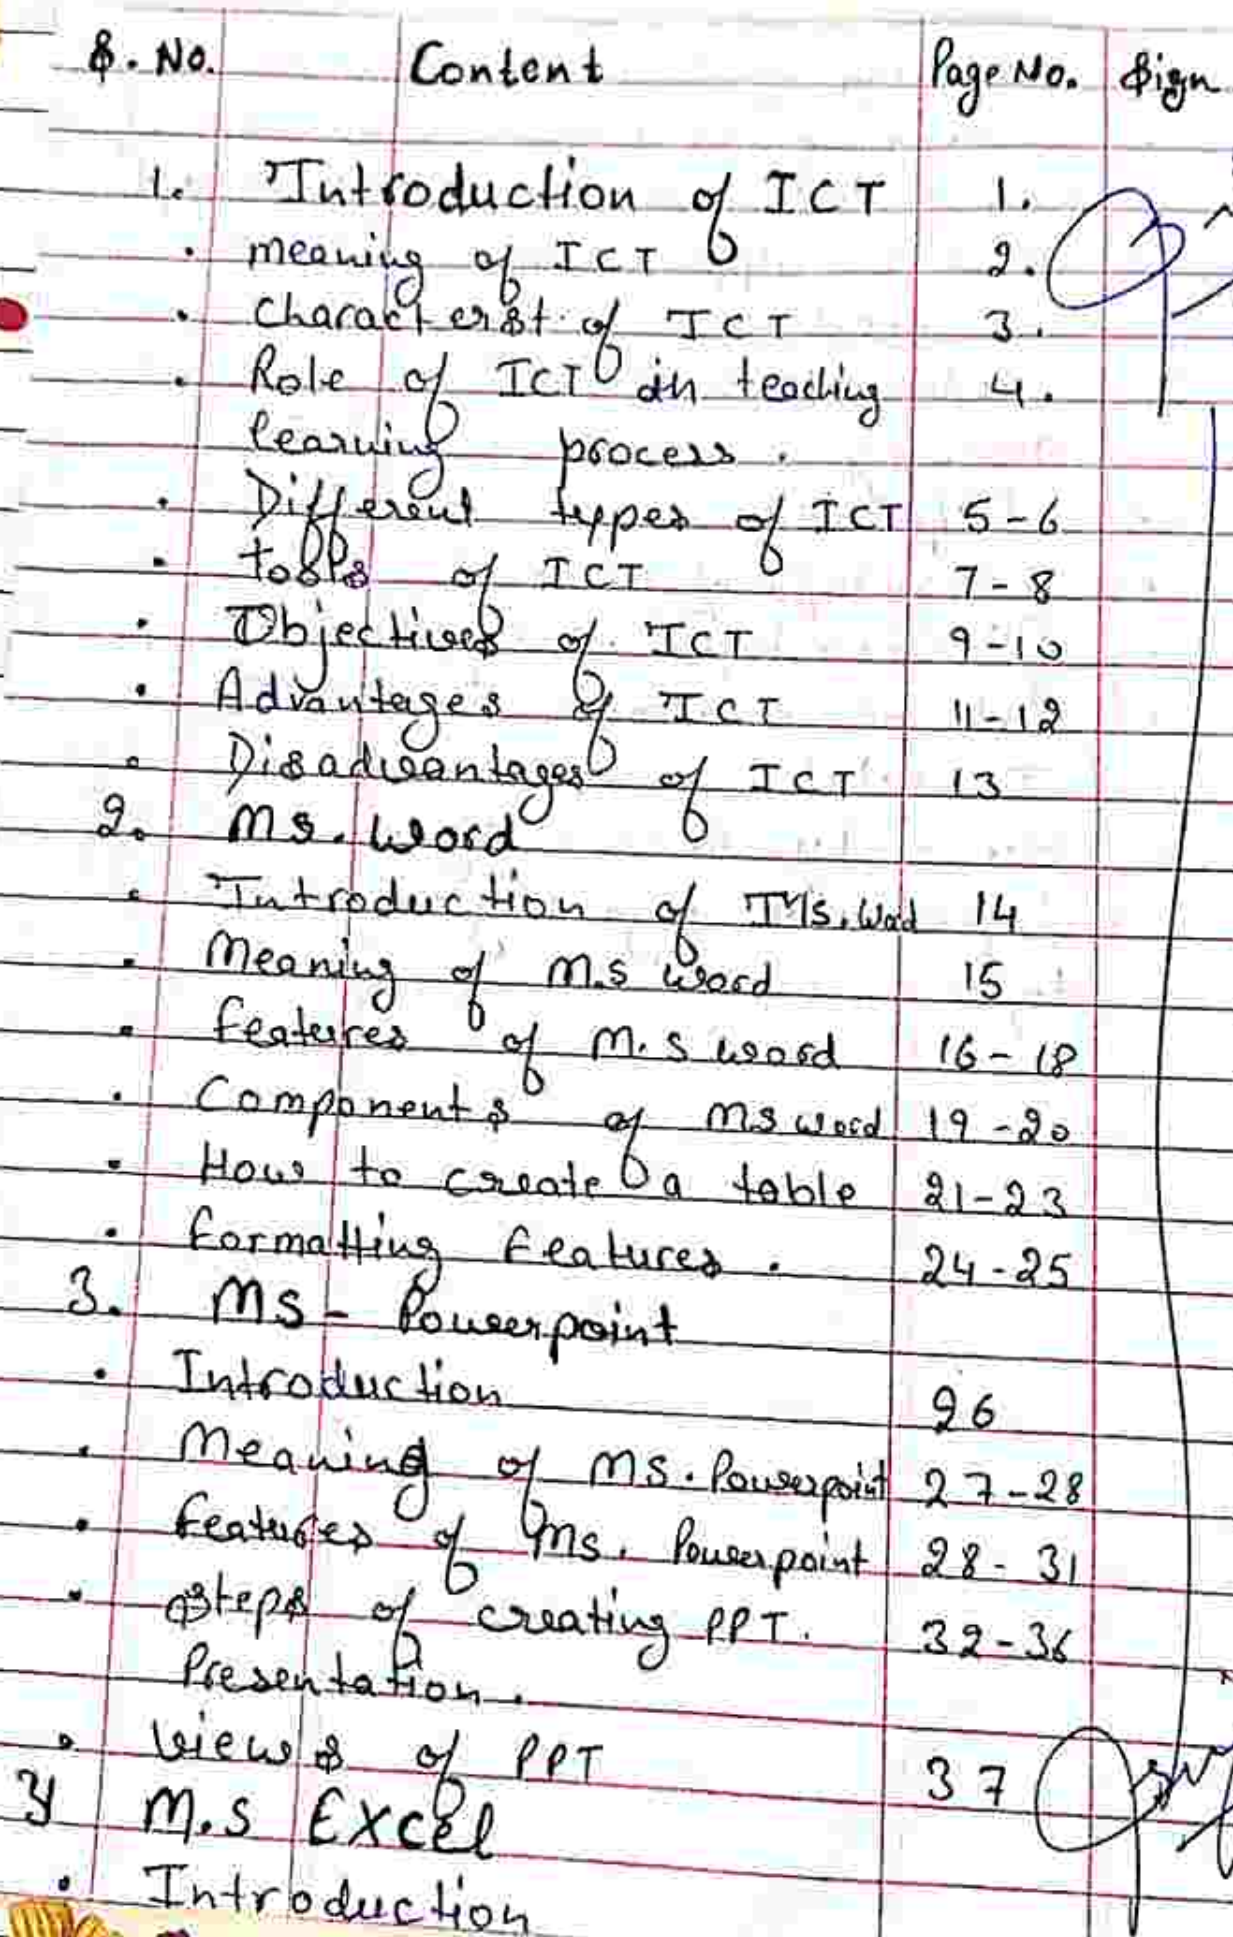 S. No. Content Page No. Sign
1. Introduction of ICT 1.
. meaning of ICT 2.
. Characterst. of ICT 3.
. Role of ICT in teaching 4.
learning process.
. Different types of ICT 5-6
. tools of ICT 7-8
. Objectives of ICT 9-10
. Advantages of ICT 11-12
. Disadvantages of ICT 13
2. MS. Word
. Introduction of MS. Word 14
. Meaning of M.S Word 15
. features of M.S word 16-18
. Components of MS word 19-20
. How to create a table 21-23
. formatting features. 24-25
3. MS - Powerpoint
. Introduction 26
. Meaning of MS. Powerpoint 27-28
. features of Ms. Powerpoint 28-31
. steps of creating PPT. 32-36
Presentation.
. views of PPT 37
M.S EXCEl
. Introduction